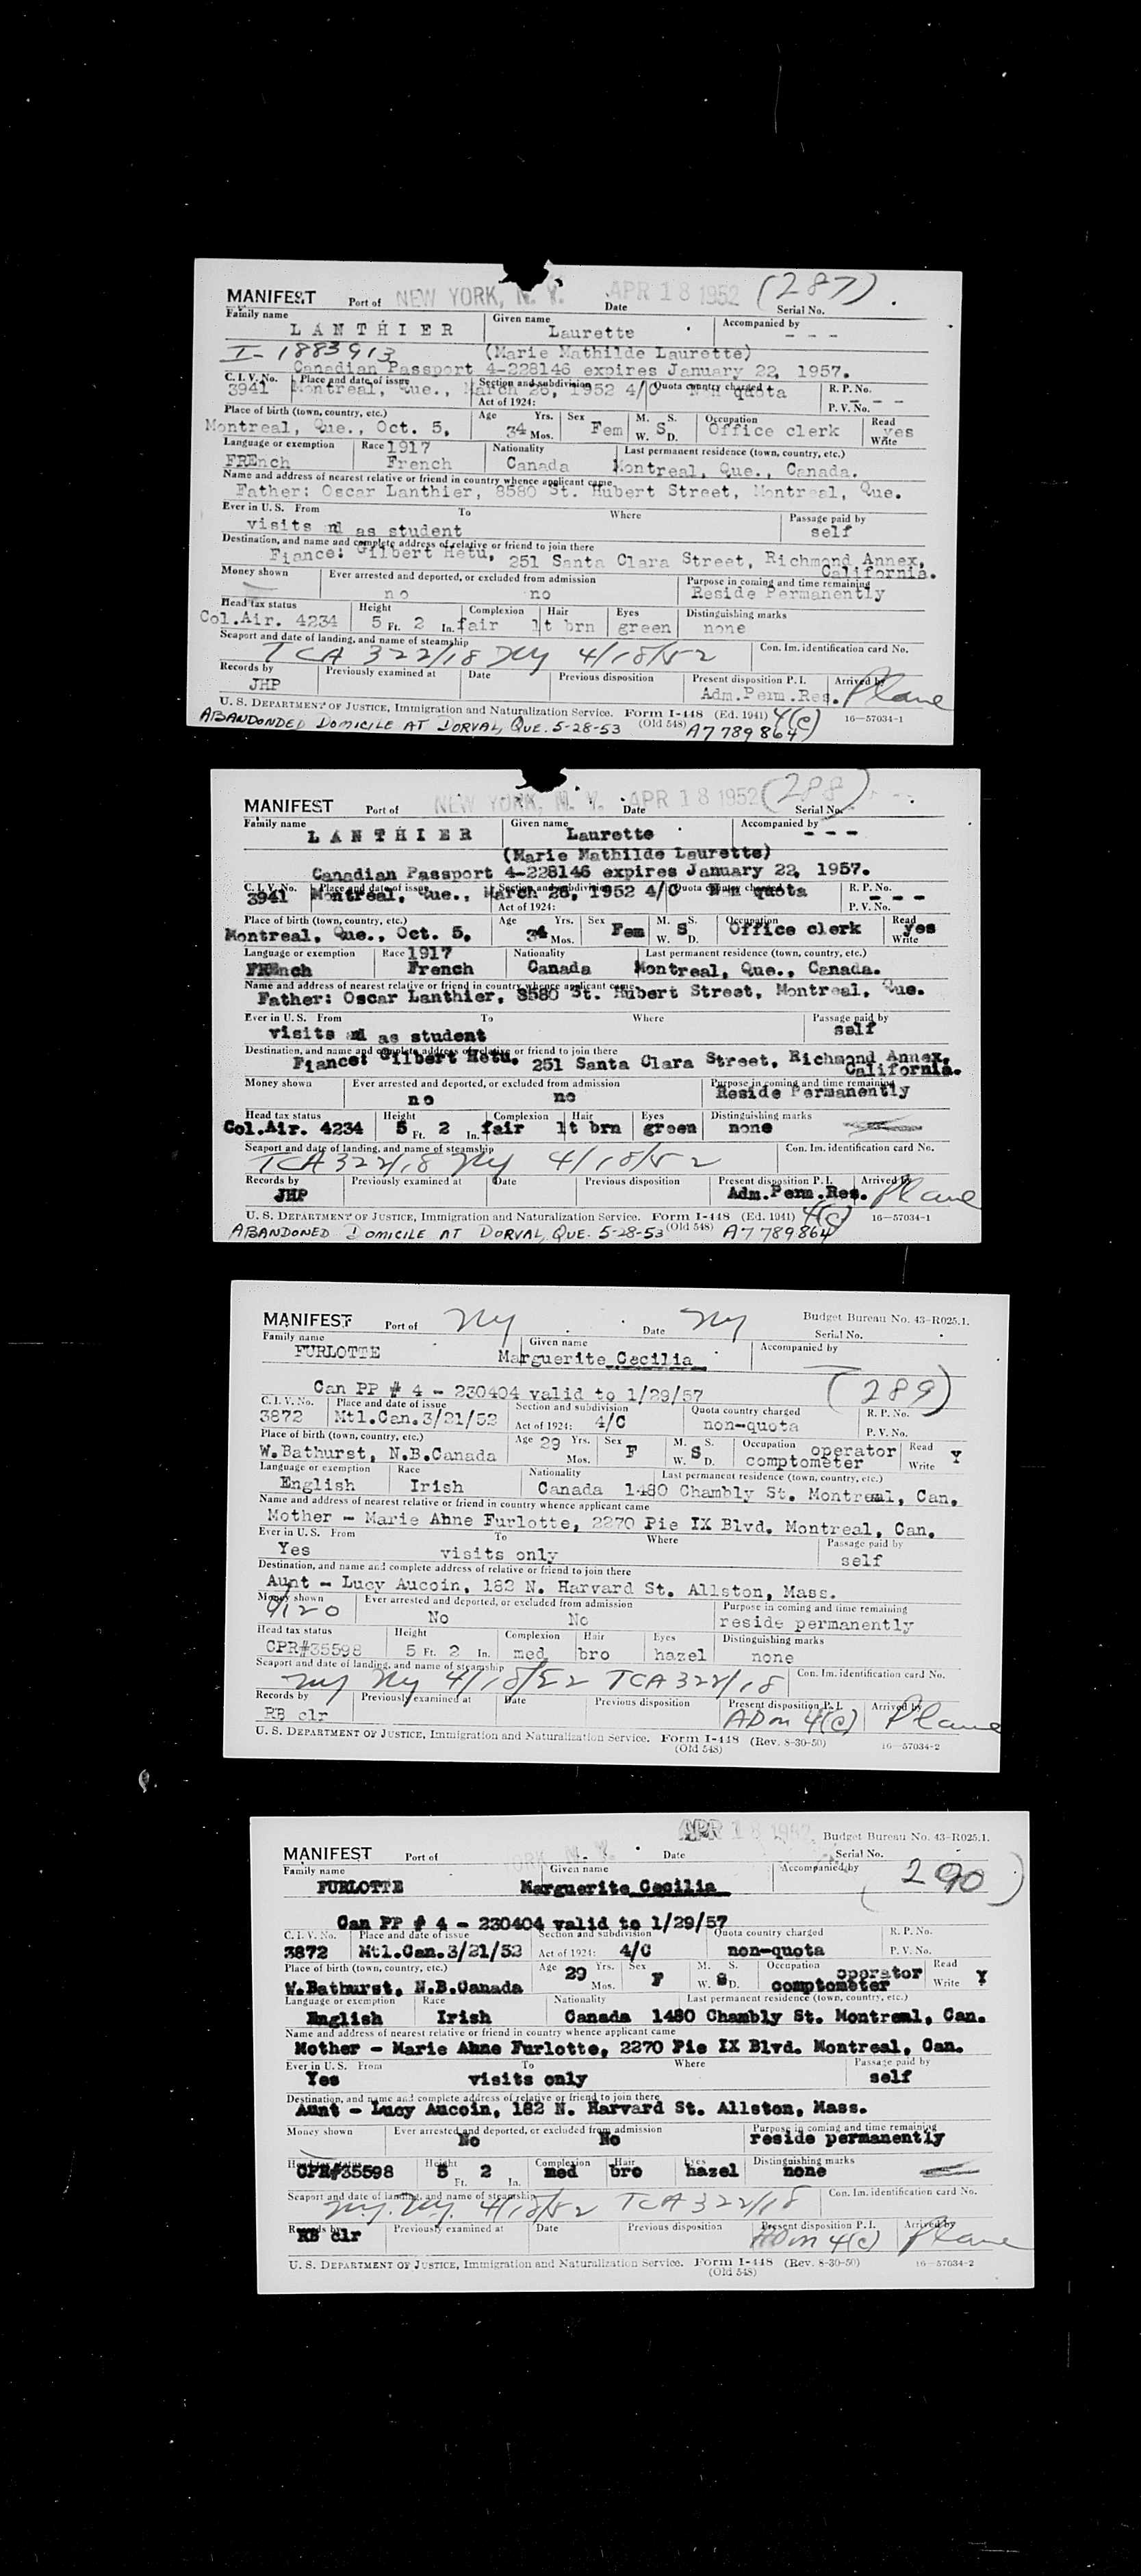 MANIFEST Port of NEW YORK, N. Y. Date APR 18 1952 Serial No. (287)
Family name Given name Accompanied by
LANTHIER Laurette - - -
I-1883913 (Marie Mathilde Laurette)
Canadian Passport 4-228146 expires January 22, 1957.
C. I. V. No. Place and date of issue Section and subdivision Quota country charged R. P. No.
3941 Montreal, Que., March 26, 1952 4/C Non quota - - -
Act of 1924: P. V. No.
Place of birth (town, country, etc.) Age Yrs. Sex M. S. Occupation Read
Montreal, Que., Oct. 5, 34 Mos. Fem W. S D. Office clerk yes Write
Language or exemption Race 1917 Nationality Last permanent residence (town, country, etc.)
FREnch French Canada Montreal, Que., Canada.
Name and address of nearest relative or friend in country whence applicant came
Father: Oscar Lanthier, 8580 St. Hubert Street, Montreal, Que.
Ever in U. S. From To Where Passage paid by
visits as student self
Destination, and name and complete address of relative or friend to join there
Fiance: Gilbert Hetu, 251 Santa Clara Street, Richmond Annex, California.
Money shown Ever arrested and deported, or excluded from admission Purpose in coming and time remaining
no no Reside Permanently
Head tax status Height Complexion Hair Eyes Distinguishing marks
Col.Air. 4234 5 Ft. 2 In. fair lt brn green none
Seaport and date of landing, and name of steamship Con. Im. identification card No.
TCA 322/18 NY 4/18/52
Records by Previously examined at Date Previous disposition Present disposition P. I. Arrived by
JHP Adm.Perm.Res. Plane
U. S. DEPARTMENT OF JUSTICE, Immigration and Naturalization Service. Form I-448 (Ed. 1941) 4(c) 16—57034-1
(Old 548)
ABANDONDED DOMICILE AT DORVAL, QUE. 5-28-53 A7 789 864
MANIFEST Port of NEW YORK, N. Y. Date APR 18 1952 Serial No. (288)
Family name Given name Accompanied by
LANTHIER Laurette - - -
(Marie Mathilde Laurette)
Canadian Passport 4-228146 expires January 22, 1957.
C. I. V. No. Place and date of issue Section and subdivision Quota country charged R. P. No.
3941 Montreal, Que., March 26, 1952 4/C Non quota - - -
Act of 1924: P. V. No.
Place of birth (town, country, etc.) Age Yrs. Sex M. S. Occupation Read
Montreal, Que., Oct. 5, 34 Mos. Fem W. S D. Office clerk yes Write
Language or exemption Race 1917 Nationality Last permanent residence (town, country, etc.)
FREnch French Canada Montreal, Que., Canada.
Name and address of nearest relative or friend in country whence applicant came
Father: Oscar Lanthier, 8580 St. Hubert Street, Montreal, Que.
Ever in U. S. From To Where Passage paid by
visits as student self
Destination, and name and complete address of relative or friend to join there
Fiance: Gilbert Hetu, 251 Santa Clara Street, Richmond Annex, California.
Money shown Ever arrested and deported, or excluded from admission Purpose in coming and time remaining
no no Reside Permanently
Head tax status Height Complexion Hair Eyes Distinguishing marks
Col.Air. 4234 5 Ft. 2 In. fair lt brn green none
Seaport and date of landing, and name of steamship Con. Im. identification card No.
TCA 322/18 NY 4/18/52
Records by Previously examined at Date Previous disposition Present disposition P. I. Arrived by
JHP Adm.Perm.Res. Plane
U. S. DEPARTMENT OF JUSTICE, Immigration and Naturalization Service. Form I-448 (Ed. 1941) 4(c) 16—57034-1
(Old 548)
ABANDONED DOMICILE AT DORVAL, QUE. 5-28-53 A7 789 864
MANIFEST Port of NY Date NY Budget Bureau No. 43-R025.1.
Serial No.
Family name Given name Accompanied by
FURLOTTE Marguerite Cecilia
Can PP # 4 - 230404 valid to 1/29/57 (289)
C. I. V. No. Place and date of issue Section and subdivision Quota country charged R. P. No.
3872 Mtl.Can.3/21/52 Act of 1924: 4/C non-quota P. V. No.
Place of birth (town, country, etc.) Age 29 Yrs. Sex M. S. Occupation operator Read
W.Bathurst, N.B.Canada Mos. F W. S D. comptometer Write Y
Language or exemption Race Nationality Last permanent residence (town, country, etc.)
English Irish Canada 1480 Chambly St. Montreal, Can.
Name and address of nearest relative or friend in country whence applicant came
Mother - Marie Anne Furlotte, 2270 Pie IX Blvd. Montreal, Can.
Ever in U. S. From To Where Passage paid by
Yes visits only self
Destination, and name and complete address of relative or friend to join there
Aunt - Lucy Aucoin, 182 N. Harvard St. Allston, Mass.
Money shown Ever arrested and deported, or excluded from admission Purpose in coming and time remaining
No No reside permanently
Head tax status Height Complexion Hair Eyes Distinguishing marks
CPR#35598 5 Ft. 2 In. med bro hazel none
Seaport and date of landing, and name of steamship Con. Im. identification card No.
NY NY 4/18/52 TCA 322/18
Records by Previously examined at Date Previous disposition Present disposition P. I. Arrived by
RB clr ADm 4(c) Plane
U. S. DEPARTMENT OF JUSTICE, Immigration and Naturalization Service. Form I-448 (Rev. 8-30-50) 16—57034-2
(Old 548)
APR 18 1952 Budget Bureau No. 43-R025.1.
MANIFEST Port of YORK N. Y. Date Serial No.
Family name Given name Accompanied by (290)
FURLOTTE Marguerite Cecilia
Can PP # 4 - 230404 valid to 1/29/57
C. I. V. No. Place and date of issue Section and subdivision Quota country charged R. P. No.
3872 Mtl.Can.3/21/52 Act of 1924: 4/C non-quota P. V. No.
Place of birth (town, country, etc.) Age 29 Yrs. Sex M. S. Occupation operator Read
W.Bathurst, N.B.Canada Mos. F W. S D. comptometer Write Y
Language or exemption Race Nationality Last permanent residence (town, country, etc.)
English Irish Canada 1480 Chambly St. Montreal, Can.
Name and address of nearest relative or friend in country whence applicant came
Mother - Marie Anne Furlotte, 2270 Pie IX Blvd. Montreal, Can.
Ever in U. S. From To Where Passage paid by
Yes visits only self
Destination, and name and complete address of relative or friend to join there
Aunt - Lucy Aucoin, 182 N. Harvard St. Allston, Mass.
Money shown Ever arrested and deported, or excluded from admission Purpose in coming and time remaining
No No reside permanently
Head tax status Height Complexion Hair Eyes Distinguishing marks
CPR#35598 5 Ft. 2 In. med bro hazel none
Seaport and date of landing, and name of steamship Con. Im. identification card No.
N.Y. N.Y. 4/18/52 TCA 322/18
Records by Previously examined at Date Previous disposition Present disposition P. I. Arrived by
RB clr ADm 4(c) Plane
U. S. DEPARTMENT OF JUSTICE, Immigration and Naturalization Service. Form I-448 (Rev. 8-30-50) 16—57034-2
(Old 548)